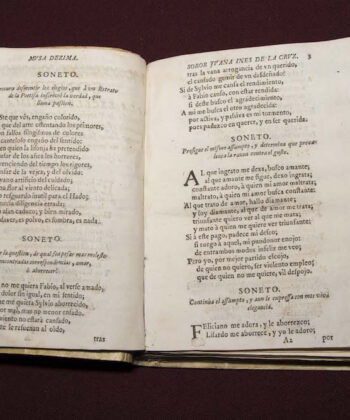 MUSA DEZIMA.
SONETO.
desmentir los elogios, que à un Retrato
de la Poetisa la verdad, que
llama passion.
Este que vès, engaño colorido,
que del arte ostentando los primores,
con falsos sylogismos de colores
es cauteloso engaño del sentido:
en quien la lisonja ha pretendido
de los años los horrores,
venciendo del tiempo los rigores,
de la vejez, y del olvido:
vano artificio del cuidado:
flor al viento delicada:
resguardo inutil para el Hado;
afan caduco; y bien mirado,
es cadaver, es polvo, es sombra, es nada.
SONETO.
question, de qual sea pesar mas molesto
correspondencias, amar,
ò aborrecer?
no me quiera Fabio, al verse amado,
dolor sin igual, en mi sentido,
que me quiera Sylvio aborrecido,
mal, mas no menor enfado.
no estarà cansado,
le resuenan al oìdo,
tras
SOROR JUANA INES DE LA CRUZ. 3
tras la vana arrogancia de un querido,
el cansado gemir de un desdeñado?
Si de Sylvio me cansa el rendimiento,
à Fabio canso, con estar rendida:
si deste busco el agradecimiento,
A mi me busca el otro agradecida:
por activa, y passiva es mi tormento,
pues padezco en querer, y en ser querida.
SONETO.
Prosigue el mismo assumpto, y determina que prevalezca
la razon contra el gusto.
AL que ingrato me dexa, busco amante;
al que amante me sigue, dexo ingrata;
constante adoro, à quien mi amor maltrata;
maltrato, à quien mi amor busca constante:
Al que trato de amor, hallo diamante;
y soy diamante, al que de amor me trata;
triunfante quiero ver al que me mata;
y mato à quien me quiere ver triunfante:
Si à este pago, padece mi deseo;
si ruego à aquel, mi pundonor enojo;
de entrambos modos infeliz me veo:
Pero yo, por mejor partido escojo,
de quien no quiero, ser violento empleo;
que de quien no me quiere, vil despojo.
SONETO.
Continùa el assumpto, y aun le expressa con mas viva
elegancia.
FEliciano me adora, y le aborrezco;
Lisardo me aborrece, y yo le adoro;
A2 por